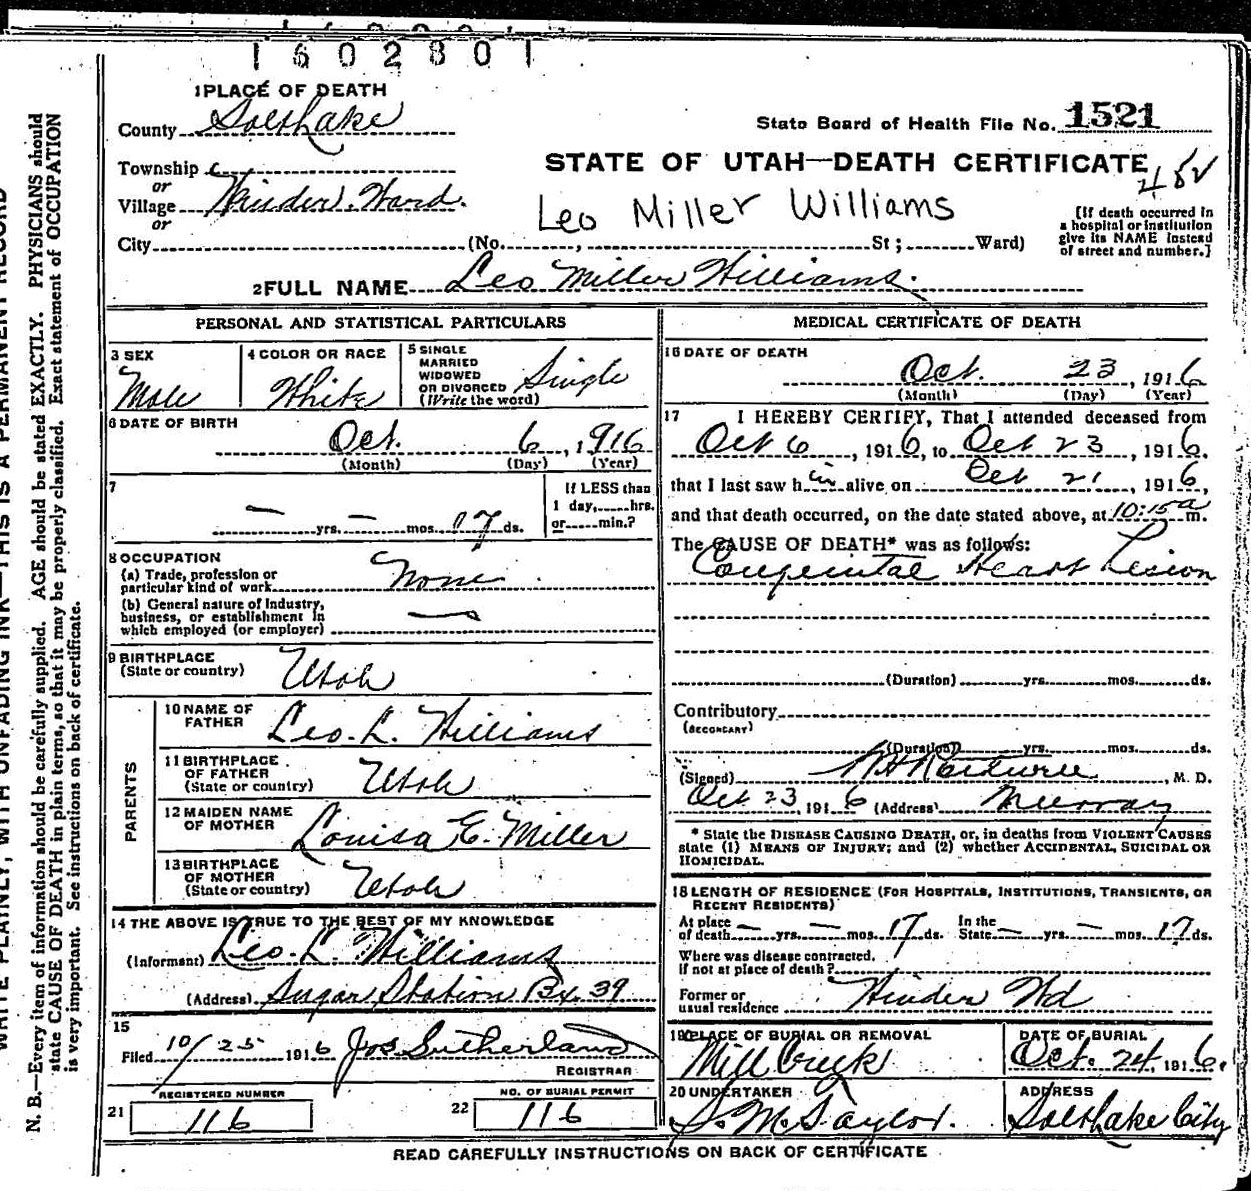 1602801
1 PLACE OF DEATH
County Salt Lake
State Board of Health File No. 1521
Township
or
Village Winder Ward.
or
City (No. , St; Ward)
STATE OF UTAH—DEATH CERTIFICATE
Leo Miller Williams
[If death occurred in
a hospital or institution
give its NAME instead
of street and number.]
2 FULL NAME Leo Miller Williams.
PERSONAL AND STATISTICAL PARTICULARS
3 SEX
Male
4 COLOR OR RACE
White
5 SINGLE
MARRIED
WIDOWED
OR DIVORCED
(Write the word)
Single
6 DATE OF BIRTH
Oct. 6, 1916
(Month) (Day) (Year)
7
— yrs. — mos. 17 ds.
If LESS than
1 day, hrs.
or min.?
8 OCCUPATION
(a) Trade, profession or
particular kind of work None
(b) General nature of industry,
business, or establishment in
which employed (or employer) —
9 BIRTHPLACE
(State or country) Utah
PARENTS
10 NAME OF
FATHER Leo. L. Williams
11 BIRTHPLACE
OF FATHER
(State or country) Utah
12 MAIDEN NAME
OF MOTHER Louisa E. Miller
13 BIRTHPLACE
OF MOTHER
(State or country) Utah
14 THE ABOVE IS TRUE TO THE BEST OF MY KNOWLEDGE
(Informant) Leo. L. Williams
(Address) Sugar Station Bx. 39
15
Filed 10/25 1916 Jos Sutherland
REGISTRAR
REGISTERED NUMBER
21 116
NO. OF BURIAL PERMIT
22 116
MEDICAL CERTIFICATE OF DEATH
16 DATE OF DEATH
Oct. 23, 1916
(Month) (Day) (Year)
17 I HEREBY CERTIFY, That I attended deceased from
Oct 6, 1916, to Oct 23, 1916.
that I last saw him alive on Oct 21, 1916,
and that death occurred, on the date stated above, at 10:15 a m.
The CAUSE OF DEATH* was as follows:
Congenital Heart Lesion
(Duration) yrs. mos. ds.
Contributory
(SECONDARY)
(Duration) yrs. mos. ds.
(Signed) , M. D.
Oct 23, 1916 (Address) Murray
* State the DISEASE CAUSING DEATH, or, in deaths from VIOLENT CAUSES
state (1) MEANS OF INJURY; and (2) whether ACCIDENTAL, SUICIDAL OR
HOMICIDAL.
18 LENGTH OF RESIDENCE (FOR HOSPITALS, INSTITUTIONS, TRANSIENTS, OR
RECENT RESIDENTS)
At place
of death — yrs. — mos. 17 ds. In the
State — yrs. — mos. 17 ds.
Where was disease contracted.
if not at place of death?
Former or
usual residence Winder Wd
19 PLACE OF BURIAL OR REMOVAL
Mill Creek
DATE OF BURIAL
Oct. 24, 1916.
20 UNDERTAKER
S. M. Taylor.
ADDRESS
Salt Lake City
READ CAREFULLY INSTRUCTIONS ON BACK OF CERTIFICATE
WRITE PLAINLY, WITH UNFADING INK—THIS IS A PERMANENT RECORD
N. B.—Every item of information should be carefully supplied. AGE should be stated EXACTLY. PHYSICIANS should
state CAUSE OF DEATH in plain terms, so that it may be properly classified. Exact statement of OCCUPATION
is very important. See instructions on back of certificate.